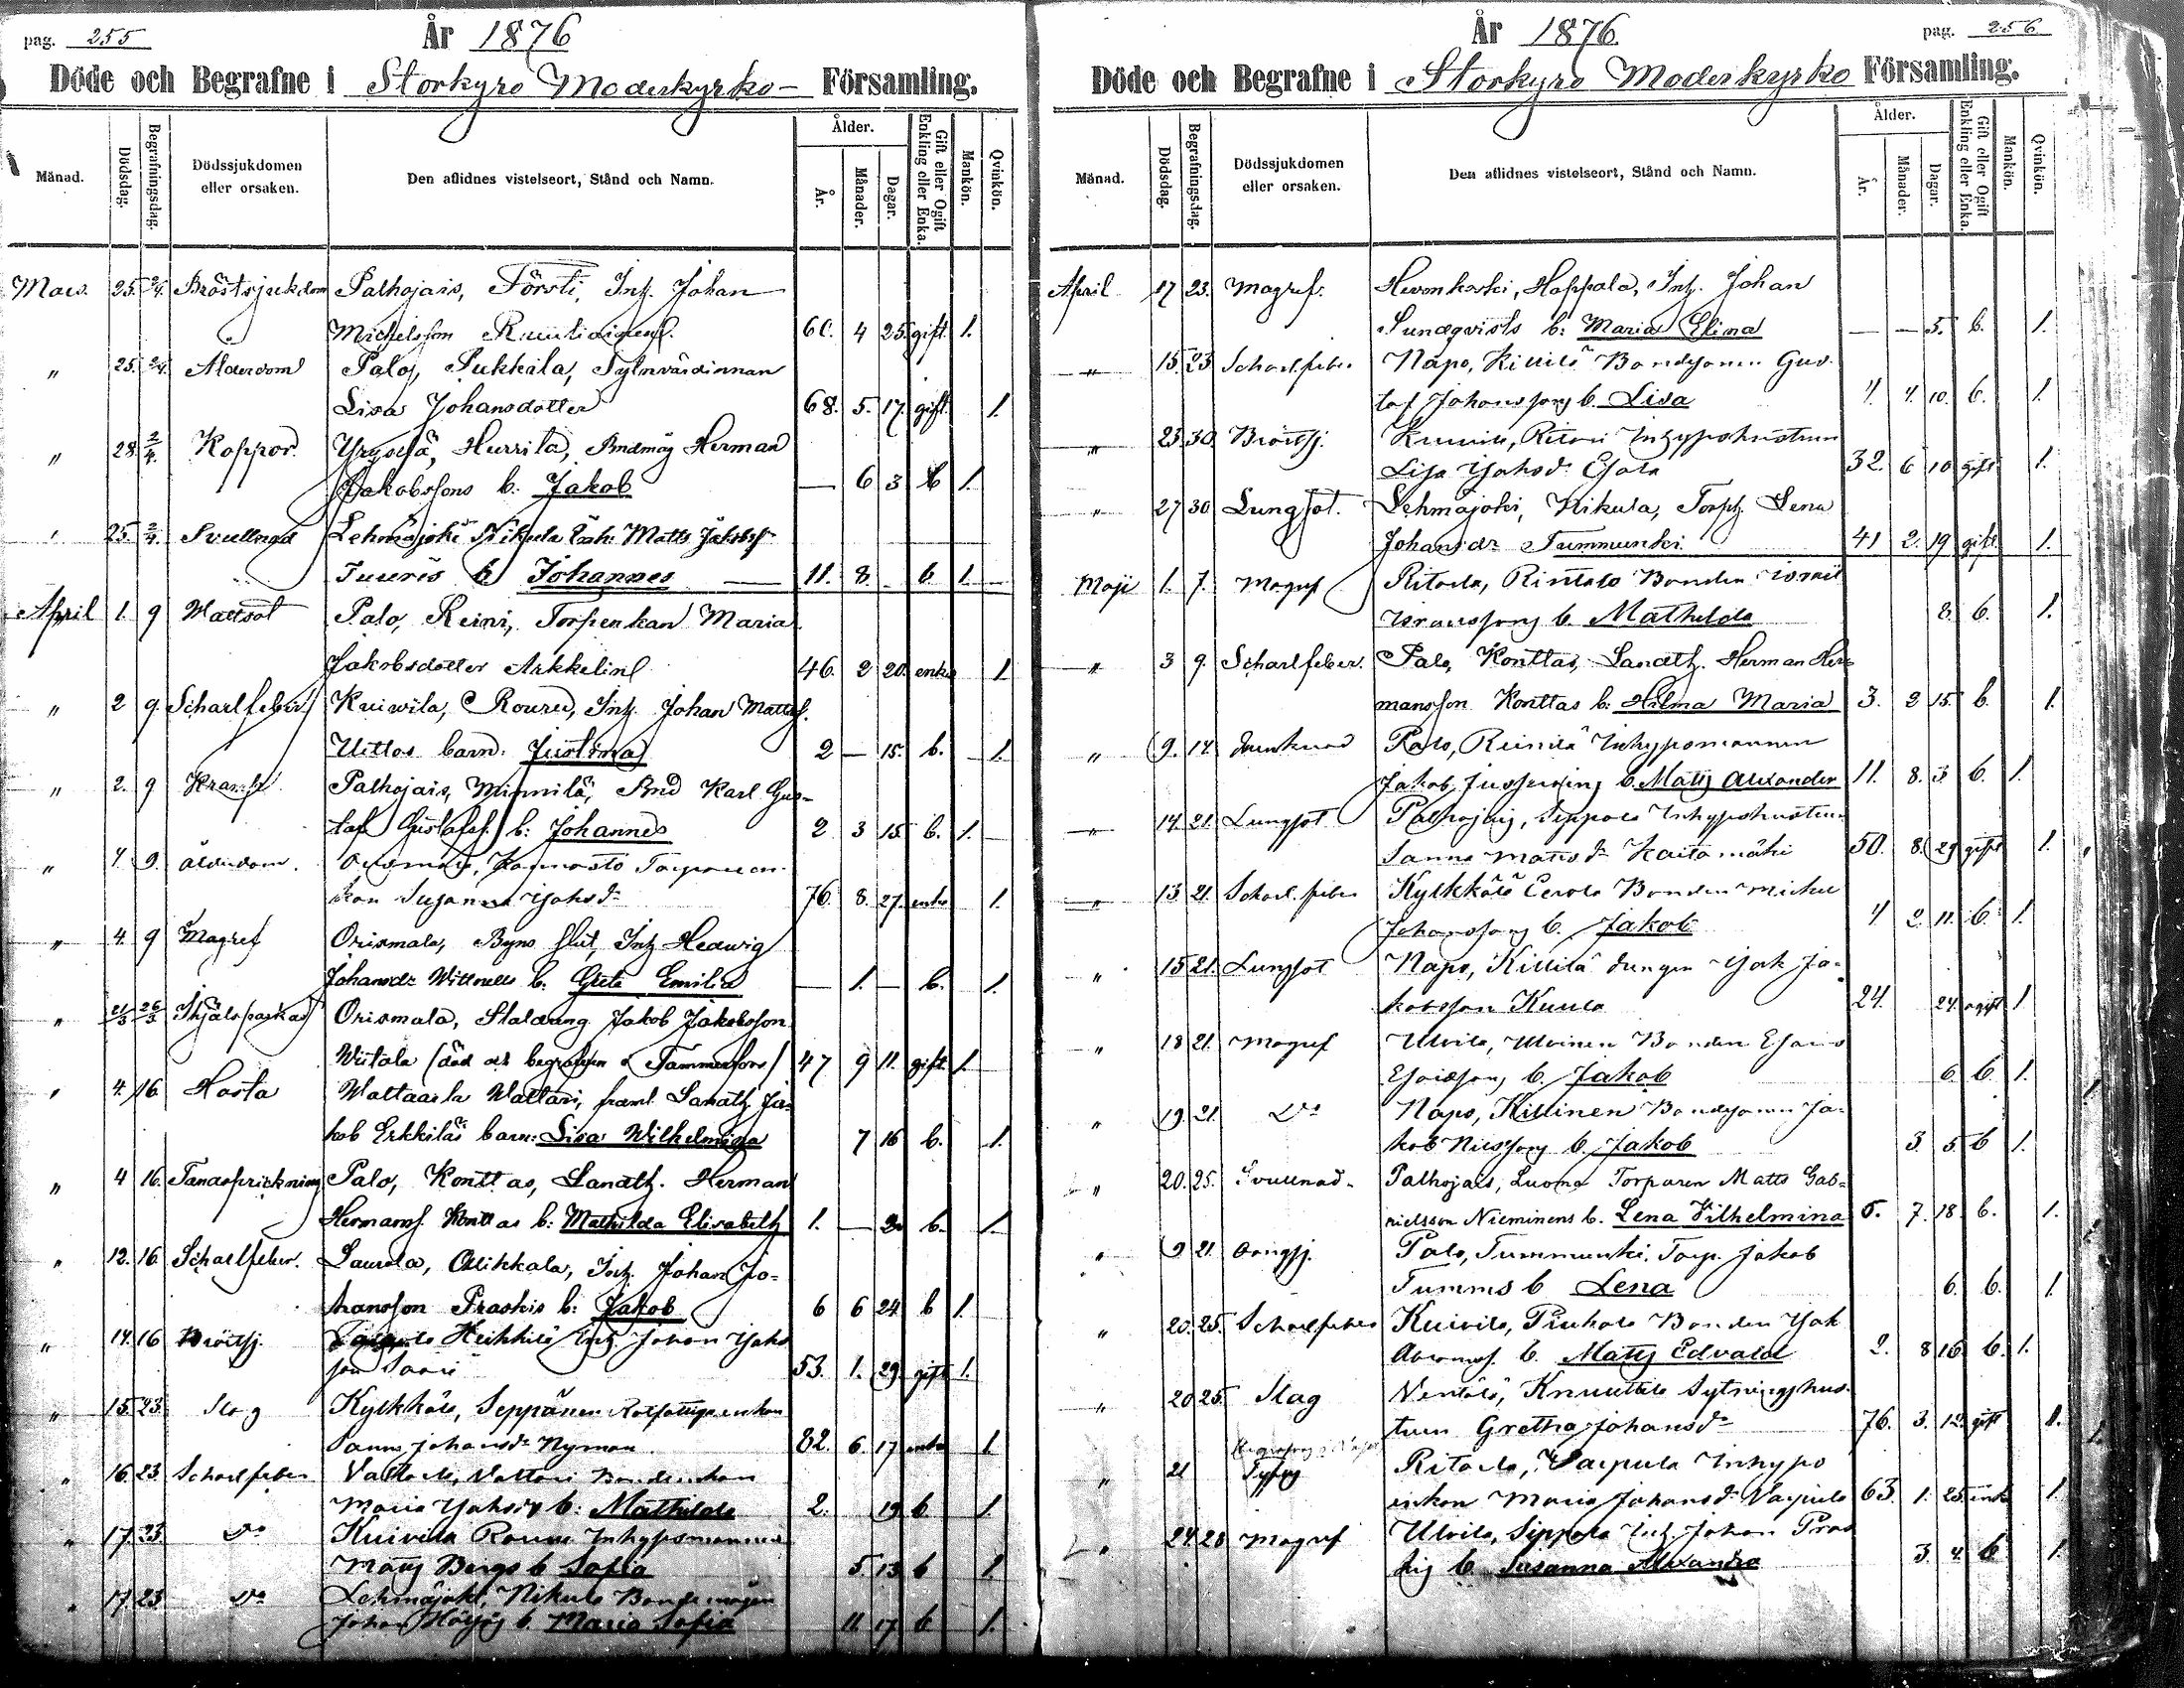 pag. 255
År 1876
Döde och Begrafne i Storkyro Moderkyrko- Församling.
Månad. Dödsdag. Begrafningsdag. Dödssjukdomen eller orsaken. Den aflidnes vistelseort, Stånd och Namn. Ålder. År. Månader. Dagar. Gift eller Ogift Enkling eller Enka. Mankön. Qvinkön.
Mars. 25. 2/4. Bröstsjukdom Palhojais, Försti, Inh. Johan
Michelsson 60. 4 25 gift. 1.
" 25. 2/4. Ålderdom Palo, Pukkila, Sytnvärdinnan
Lisa Johansdotter 68. 5. 17. gift. 1.
" 28. 2/4. Koppor. Yryselä, Hurrila, Bndmåg Herman
Jakobssons b. Jakob — 6 3 b 1.
" 25. 2/4. Svullnad Lehmäjoki Nikula Matts Jakobss.
Tuuris b. Johannes — 11. 8. - b. 1.
April 1. 9 Wattsot Palo, Reini, Torpenkan Maria
Jakobsdotter Arkkelin 46. 2 20. enka 1
" 2 9. Scharlfeber Kuivila, Rouru, Inh. Johan Mattss.
Uitlos barn: Justina 2 — 15. b. 1.
" 2. 9 Kramp Palhojais, Minnilä, Bnd Karl Gus-
taf Gustafss. b: Johannes 2 3 15 b. 1.
" 4. 9. ålderdom. Orismala, Torparen-
kan Susanna Jakobsdr 76. 8. 27. enka 1.
" 4. 9 Magref Orismala, Byns hlut, Inh Hedvig
Johansdr b: Greta Emilia — 1. — b. 1.
" 21/3 26/3 Ihjälsparkad Orismala, Staldräng Jakob Jakobsson
Wiitala (död och begrafven i Tammerfors) 47 9 11. gift. 1.
" 4. 16 Hosta Wattaala Wattari, framl. Landth. Ja-
kob Erkkiläs barn: Lisa Wilhelmina 7 16 b. 1.
" 4 16. Tandsprickning Palo, Konttas, Landth. Herman
Hermanss. Konttas b: Mathilda Elisabeth 1. — 2 b. 1.
" 12. 16 Scharlfeber. Laurola, Ollikkala, Inh. Johan Jo-
hansson Praskis b: Jakob 6 6 24 b 1.
" 14. 16 Bröstsj. Heikkilä Inh. Johan Jakobs
son Saari 53. 1. 29. gift 1.
" 15. 23. Slag Kylkkälä, Seppänen Rotfattigenkan
Sanna Johansdr Nyman 82. 6. 17 enka 1
" 16. 23. Scharlfeber Vattari Bondenkan
Maria Jakobsdr b: Mathilda 2. 19 b. 1
" 17. 23. Do Kuivila Rouru Inhysmannen
Matts Bergs b Sofia 5. 13 b 1
" 17. 23 Do Lehmäjoki, Nikula Bondemågen
Johan b. Maria Sofia 11. 17 b 1.
År 1876. pag. 256
Döde och Begrafne i Storkyro Moderkyrko Församling.
Månad. Dödsdag. Begrafningsdag. Dödssjukdomen eller orsaken. Den aflidnes vistelseort, Stånd och Namn. Ålder. År. Månader. Dagar. Gift eller Ogift Enkling eller Enka. Mankön. Qvinkön.
April 17 23. Magref. Hevonkoski, Hoppala, Inh. Johan
Sundqvists b: Maria Elina — — 5. b. 1.
" 15. 23 Scharlfeber Napo, Killilä Bondsonen Gus-
taf Johanssons b. Lisa 4. 4. 10. b. 1.
" 23. 30. Bröstsj. Kuivila, Ritari Inhyseshustrun
Lisa Jakobsdr 32. 6 10 gift 1.
" 27 30 Lungsot. Lehmäjoki, Nikula, Torph. Lena
Johansdr Tummunki 41 2. 19 gift. 1.
Maji 1. 7. Magref Ritaala, Rintala Bonden Israel
Israelssons b. Mathilda 8. b. 1.
" 3 9. Scharlfeber. Palo, Konttas, Landth. Herman Her-
mansson Konttas b: Hilma Maria 3. 2 15. b. 1.
" 9. 14. Drunknad Palo, Reinilä Inhysesmannen
Jakob b. Matts Alexander 11. 8. 3 b. 1.
" 14 21. Lungsot Palhojais, Seppälä Inhyseshustrun
Sanna Mattsdr Kaitamäki 50. 8. 29 gift 1.
" 13 21. Scharl.feber Kylkkälä Eerola Bonden Michel
Johanssons b. Jakob 4 2. 11. b. 1.
" 15 21. Lungsot Napo, Killilä drängen Jak Ja-
kobsson Kuula 24. 24. ogift 1
" 18 21. Magref Ulvila, Ulvinen Bonden Esaias
Esaiassons b. Jakob 6. b. 1.
" 19. 21. Do Napo, Killinen Bondsonen Ja-
kob Nilssons b. Jakob 3 5 b 1.
" 20. 25. Svullnad. Palhojais, Luoma Torparen Matts Gab-
rielsson Nieminens b. Lena Vilhelmina 5. 7. 18 b. 1.
" 9 21. Palo, Tummunki. Torp. Jakob
Tumms b Lena 6. b. 1.
" 20. 25. Scharlfeber Kuivila, Piuhola Bonden Jak
Abramss. b. Matts Edvard 2. 8 16. b. 1.
" 20 25. Slag Ventälä, Knuuttila Sytningshus-
trun Gretha Johansdr 76. 3. 12. gift 1.
" 21 Tyfus Ritaala, Inhyses
enkan Maria Johansdr 63. 1. 25 enk 1.
" 24. 28 Magref Ulvila, Seppälä Inh. Johan Pras
kis b. Susanna Alexandra 3. 4. b 1.